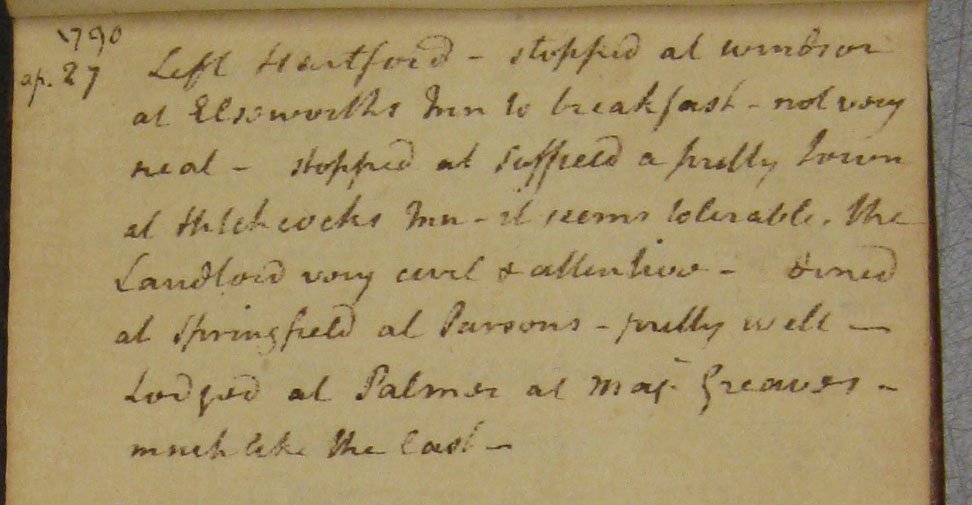 1790
ap. 27 Left Hartford - stopped at windsor
at Elsworths Inn to breakfast - not very
neat - stopped at Suffield a pretty Town
at Hitchcocks Inn - it seems tolerable. The
Landlord very civil & attentive - dined
at Springfield at Parsons - pretty well -
Lodged at Palmer at Maj. Greaves -
much like the last -